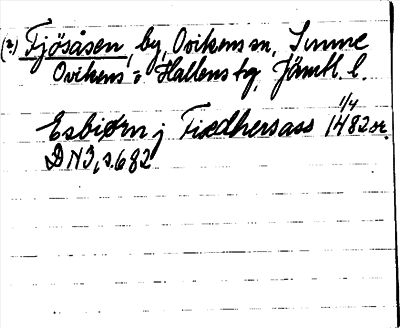 (2.) Fjösåsen, by, Ovikens sn, Sunne
Ovikens o Hallens tg, Jämtl. l.
Esbiørn j Fiædhersass 1/4 1482 or.
DN3, s. 682